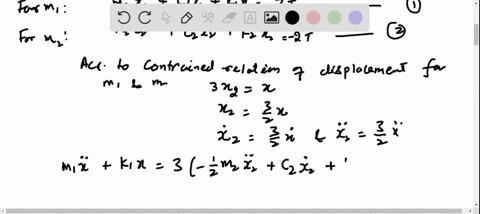 For m₁: = -3T ——— ①
For m₂: C₂ẋ₂ + K₂x₂ = -2T ——— ②
Acc. to contrained relation of displacement for
m₁ & m
3x₂ = x
x₂ = 3/2 x
ẋ₂ = 3/2 ẋ & ẍ₂ = 3/2 ẍ
m₁ẍ + K₁x = 3 (-1/2 m₂ẍ₂ + C₂ẋ₂ +